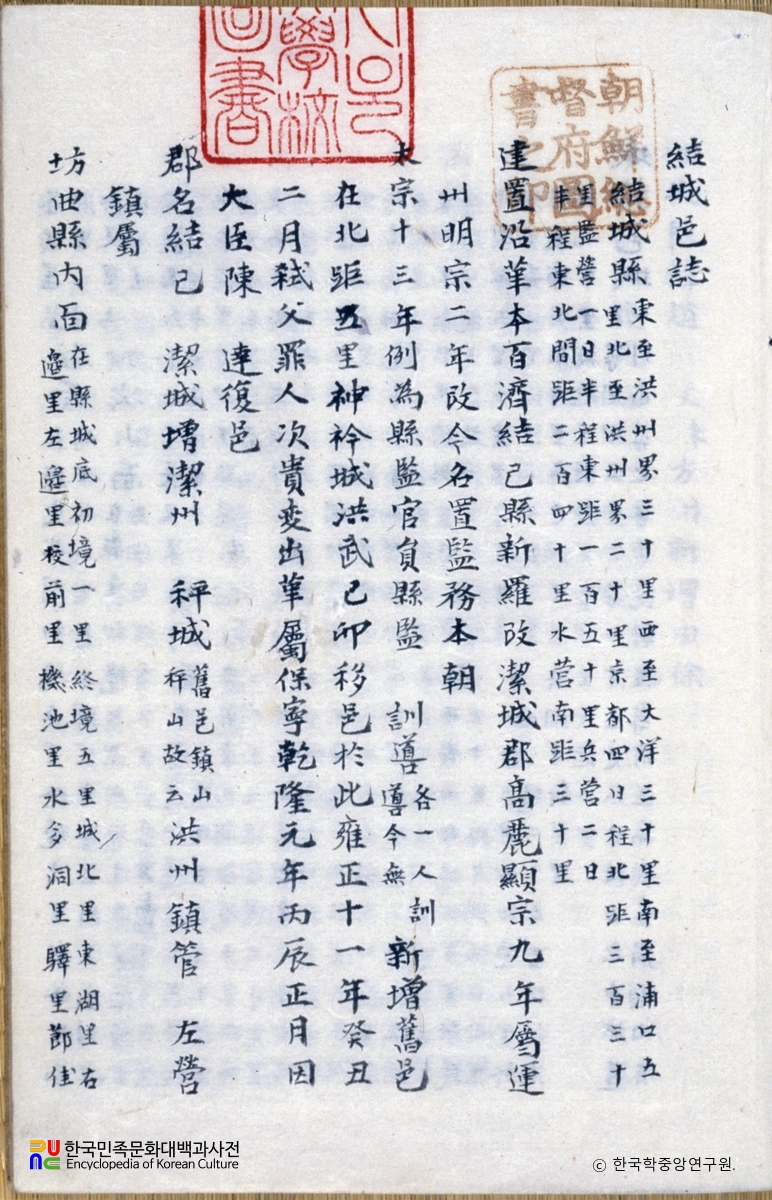 結城邑誌
結城縣 東至洪州界三十里西至大洋三十里南至浦口五
里北至洪州界二十里京都四日程北距三百三十
里監營一日半程東距一百五十里兵營二日
半程東北間距二百四十里水营南距三十里
建置沿革本百濟結己縣新羅改潔城郡高麗顯宗九年屬運
州明宗二年改今名置監務本朝
太宗十三年例為縣監官員縣監 訓導 各一人訓導今無 新增舊邑
在北距五里神衿城洪武己卯移邑於此雍正十一年癸丑
二月弑父罪人次貴变出革屬保寧乾隆元年丙辰正月因
大臣陳 達復邑
郡名結己 潔城增潔州 秤城 舊邑鎮山秤山故云 洪州鎮管 左營
鎮屬
坊曲縣内面 在縣城底初境一里終境五里城北里東湖里右
邊里左邊里校前里機池里水多洞里驛里節佳
朝鮮總督府圖書之印
學校
圖書
한국민족문화대백과사전
Encyclopedia of Korean Culture
© 한국학중앙연구원.